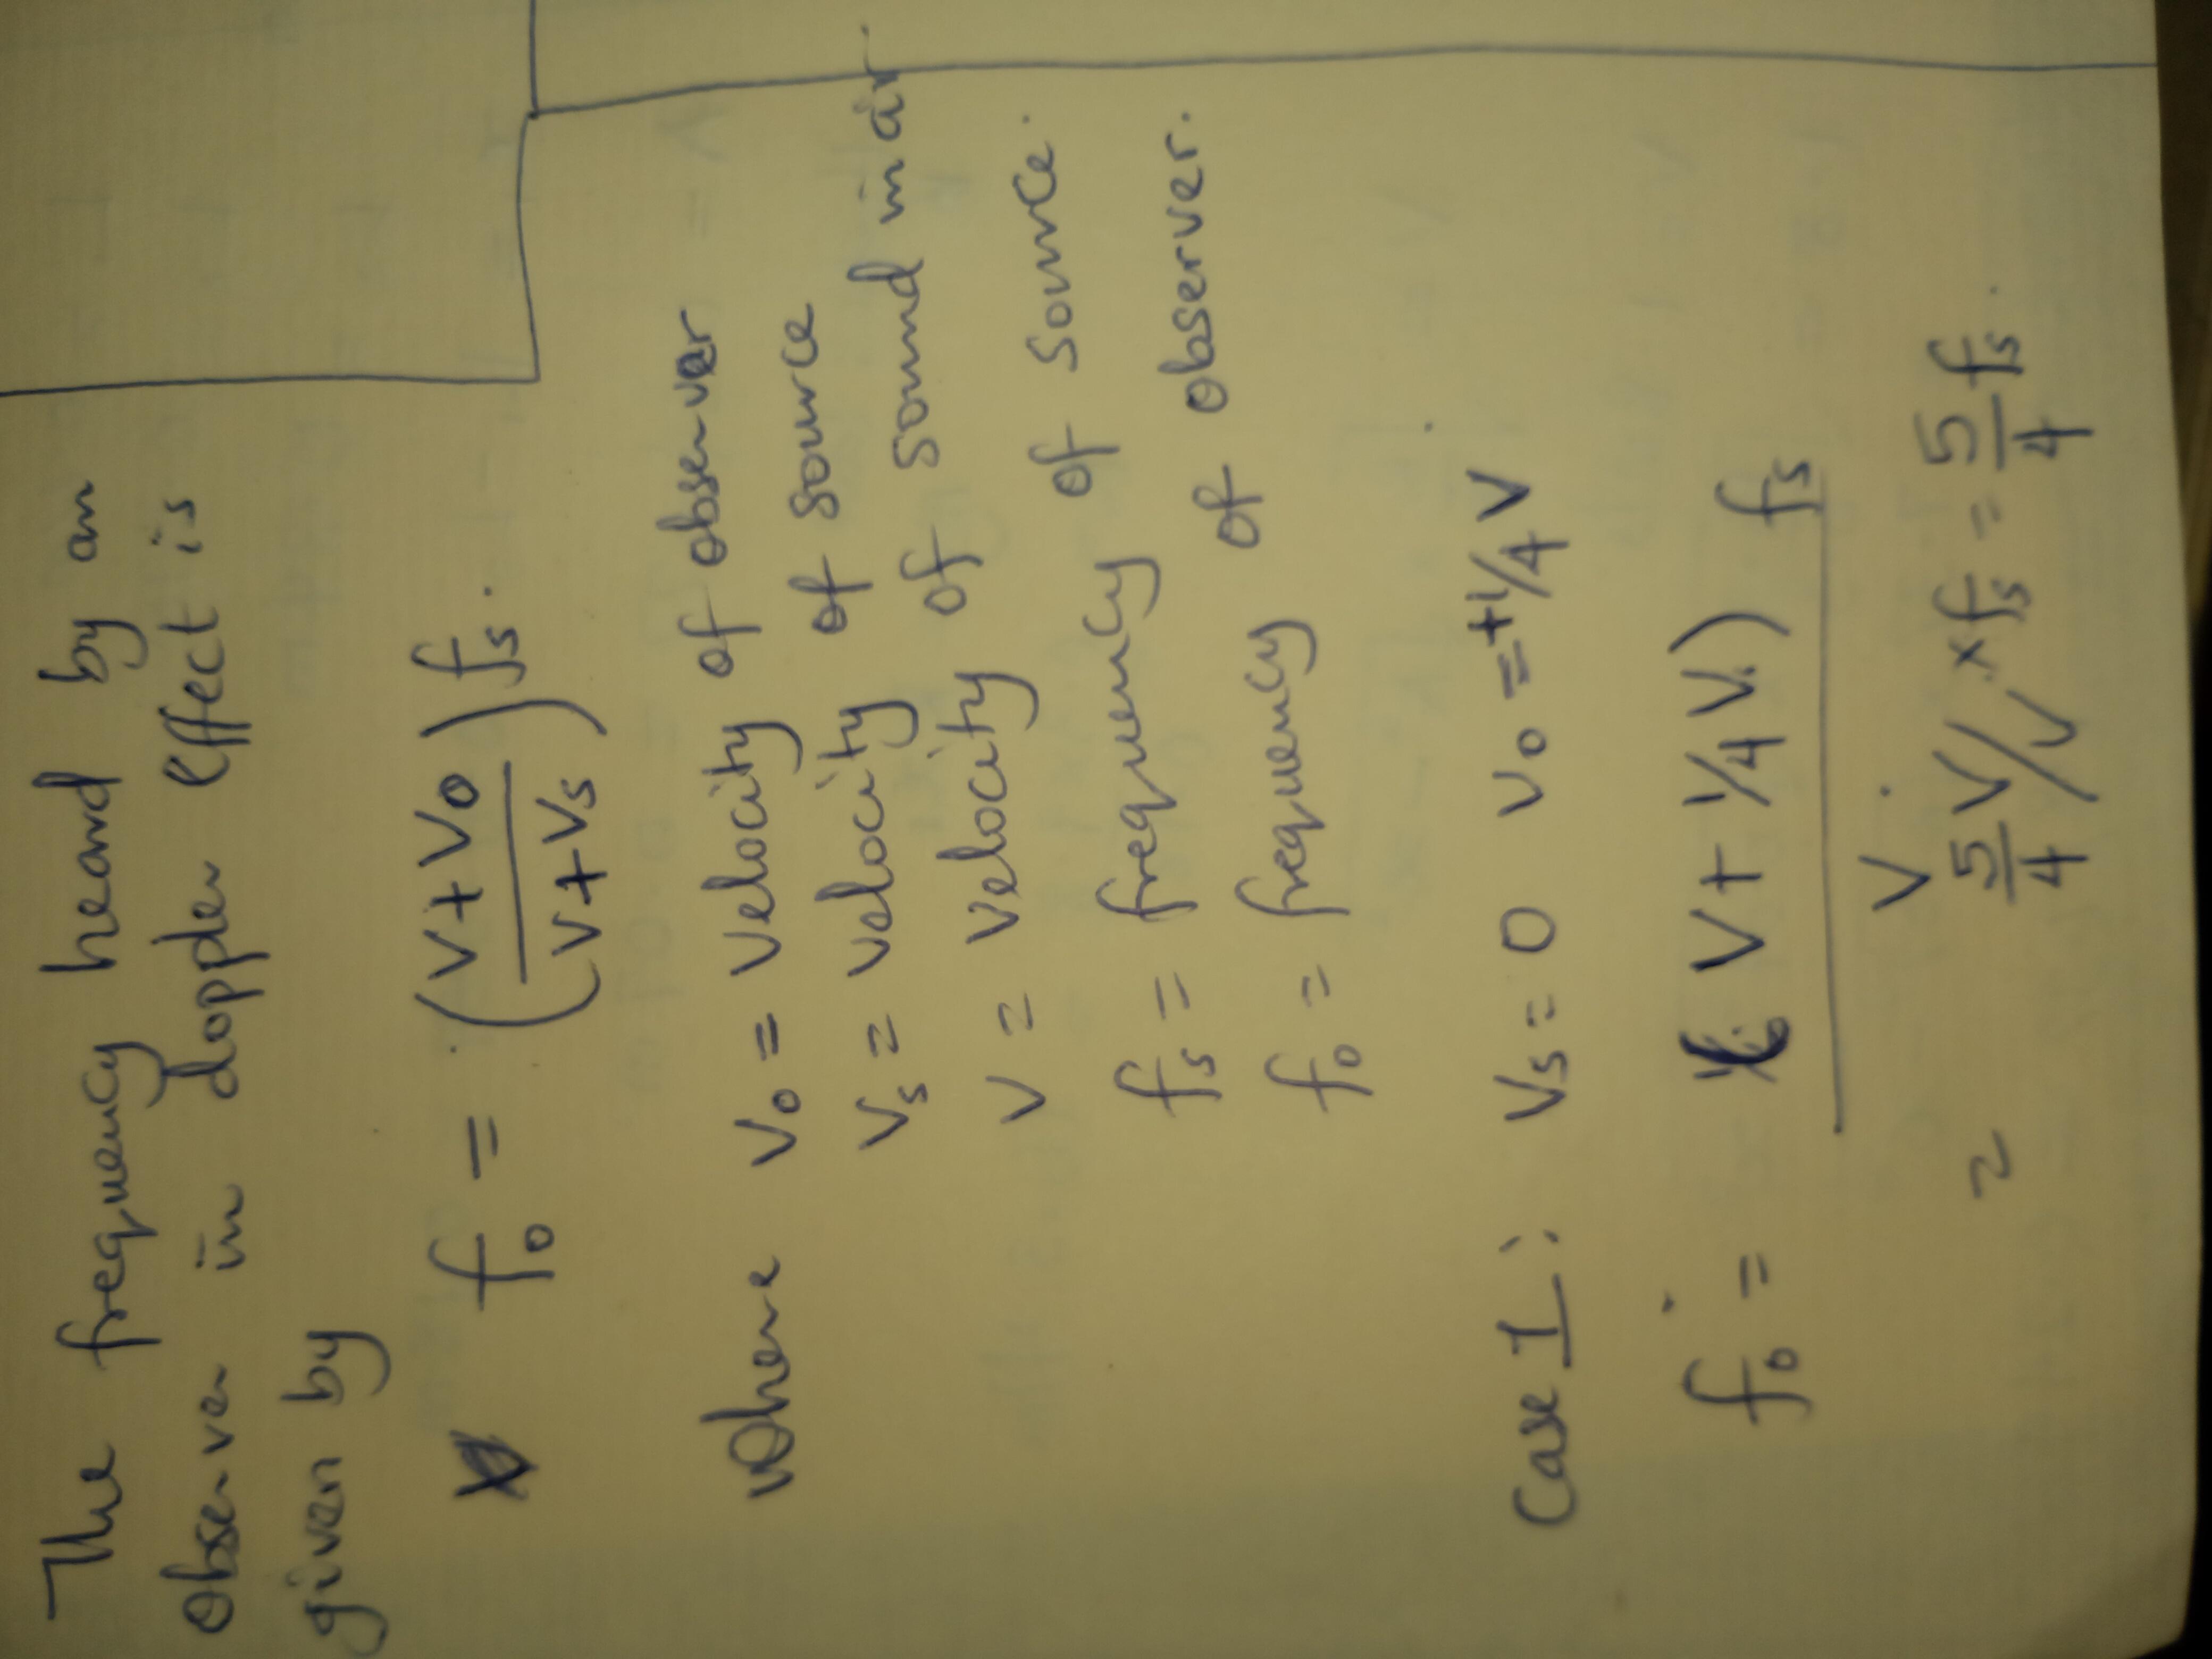 The frequency heard by an
observer in doppler effect is
given by
f₀ = (V+V₀ / V+Vₛ) fₛ.
Where V₀ = velocity of observer
Vₛ = velocity of source
V = velocity of sound in air.
fₛ = frequency of source.
f₀ = frequency of observer.
Case I: Vₛ = 0 V₀ = +1/4 V
f₀ = (V + 1/4 V) fₛ / V
= 5/4 V/V × fₛ = 5/4 fₛ.